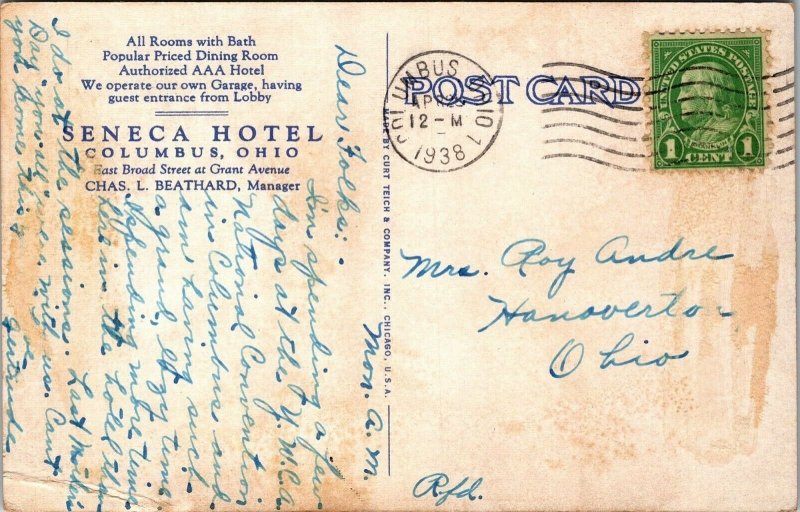 All Rooms with Bath
Popular Priced Dining Room
Authorized AAA Hotel
We operate our own Garage, having
guest entrance from Lobby
SENECA HOTEL
COLUMBUS, OHIO
East Broad Street at Grant Avenue
CHAS. L. BEATHARD, Manager
POST CARD
COLUMBUS, OHIO
APR 25
12-M
1938
1
UNITED STATES POSTAGE
FRANKLIN
1 CENT 1
MADE BY CURT TEICH & COMPANY, INC., CHICAGO, U.S.A.
Mon. A.M.
Dear Folks: -
I'm spending a few
days at the Y.M.C.A.
National Convention
in Columbus and
am having such
a grand, large time.
Spending more time
here in the hotel than
I do at the sessions. Last
Day you all were with us. Can't
you home this
Love
Gertrude
Mrs. Roy Andre
Hanoverton
Ohio
Rfd.